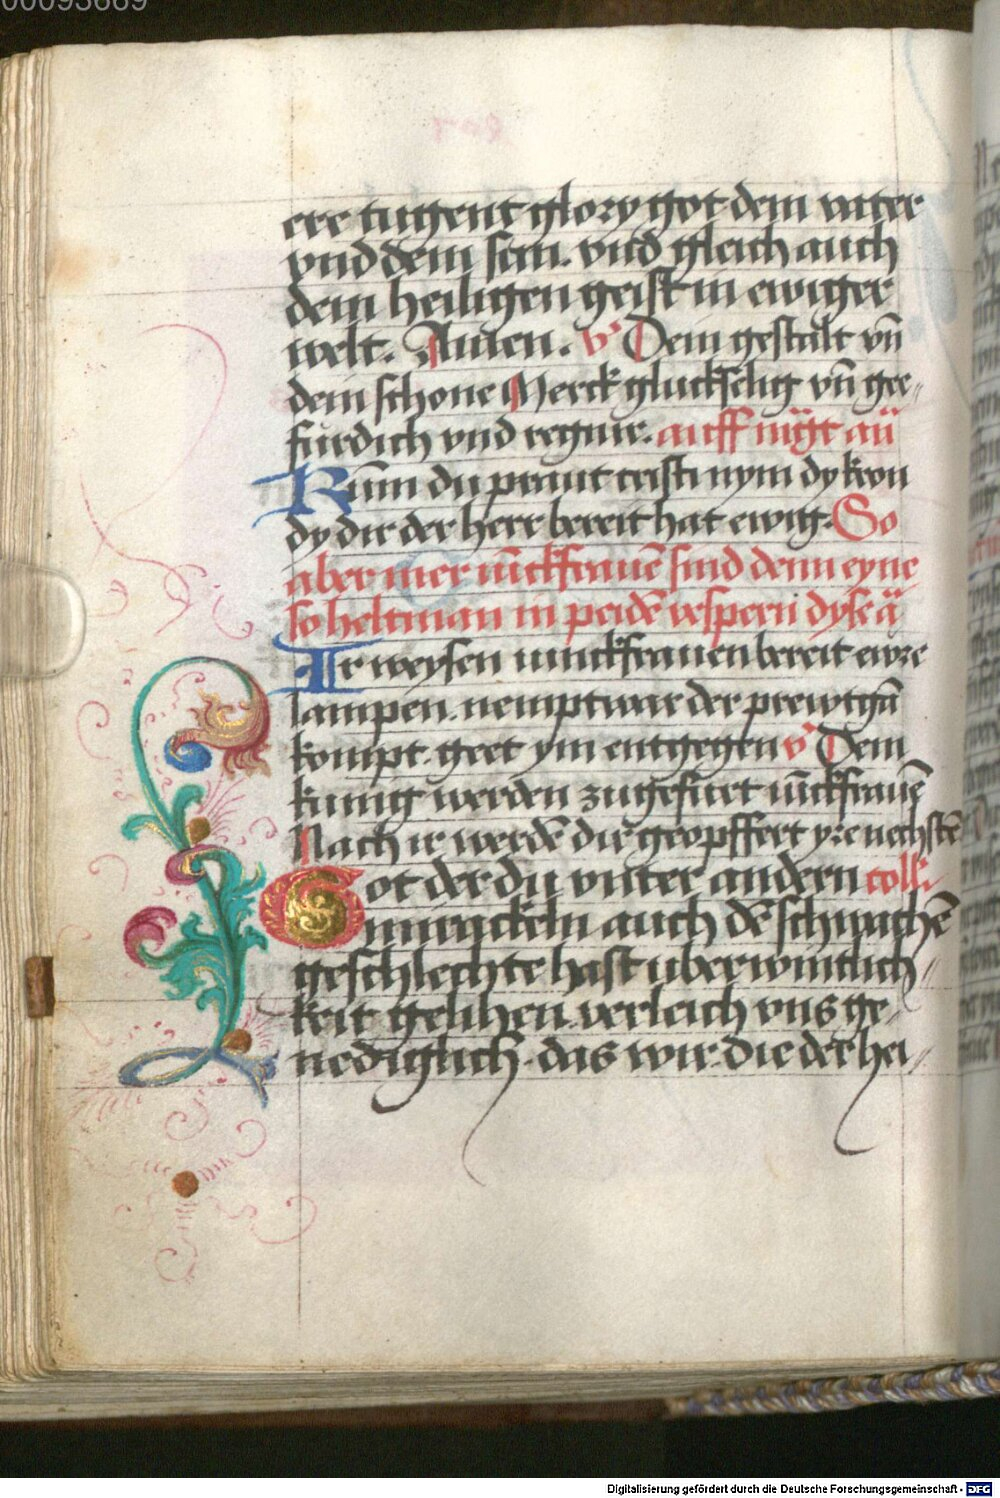 00093669
ere tugent glory got dem vater
vnd dem sun. vnd gleich auch
dem heiligen geist in ewiger
welt. Amen. v' Dein gestalt vn̄
dein schone Merck gluckselig vn̄ gee〃
fur dich vnd regnir. auff mgt an̄
Kum̄ du praut cristi nym dy kron
dy dir der herr bereit hat ewig. So
aber mer iūckfrauē sind denn eyne
so helt man in peidē vespern dyse ā
Ir weysen iunckfrauen bereit ewre
lampen. nempt war der prewtgā
kompt. geet ym entgegen v' Dem
kunig werden zugefuret iūckfrauē
Nach ir werdē dir geopffert yre nechstē
Got der du vnter andern coll'
mirackeln auch dē schwachē
geschlechte hast uberwintlich〃
keit gelihen. verleich vns ge〃
nediglich. das wir. die der hei〃
Digitalisierung gefördert durch die Deutsche Forschungsgemeinschaft - DFG